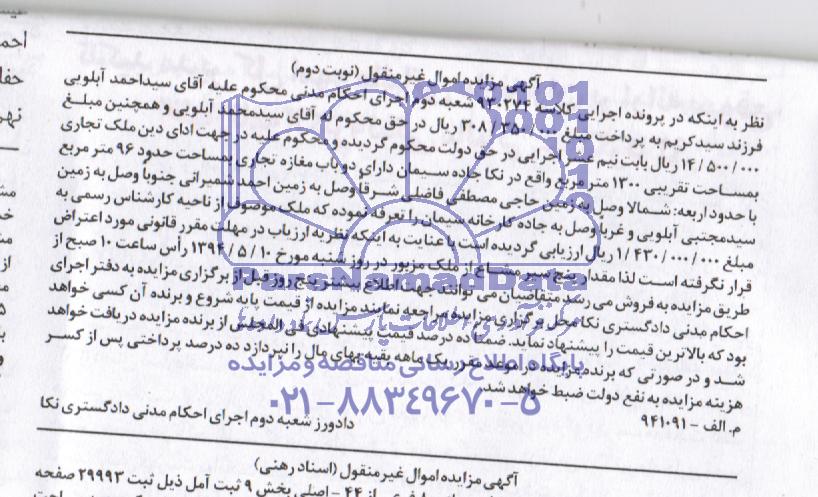 آگهی مزایده اموال غیر منقول (نوبت دوم)
نظر به اینکه در پرونده اجرایی کلاسه ۹۳۰۲۷۴ شعبه دوم اجرای احکام مدنی محکوم علیه آقای سیداحمد آبلویی
فرزند سیدکریم به پرداخت مبلغ ۳۰۸/۳۵۰/۰۰۰ ریال در حق محکوم له آقای سیدمحمد آبلویی و همچنین مبلغ
۱۴/۵۰۰/۰۰۰ ریال بابت نیم عشر اجرایی در حق دولت محکوم گردیده و محکوم علیه در جهت ادای دین ملک تجاری
بمساحت تقریبی ۱۳۰۰ متر مربع واقع در نکا جاده سیمان دارای دو باب مغازه تجاری بمساحت حدود ۹۶ متر مربع
با حدود اربعه: شمالا وصل به زمین حاجی مصطفی فاضلی شرقا وصل به زمین احمد شمیرانی جنوبا وصل به زمین
سیدمجتبی آبلویی و غربا وصل به جاده کارخانه سیمان را تعرفه نموده که ملک موصوف از ناحیه کارشناس رسمی به
مبلغ ۱/۴۳۰/۰۰۰/۰۰۰ ریال ارزیابی گردیده است با عنایت به اینکه نظریه ارزیاب در مهلت مقرر قانونی مورد اعتراض
قرار نگرفته است لذا مقدار پنج سیر مشاع از ملک مزبور در روز شنبه مورخ ۱۳۹۴/۵/۱۰ رأس ساعت ۱۰ صبح از
طریق مزایده به فروش می رسد متقاضیان می توانند جهت اطلاع بیشتر پنج روز قبل از برگزاری مزایده به دفتر اجرای
احکام مدنی دادگستری نکا محل برگزاری مزایده مراجعه نمایند مزایده از قیمت پایه شروع و برنده آن کسی خواهد
بود که بالاترین قیمت را پیشنهاد نماید. ضمنا ده درصد قیمت پیشنهادی فی المجلس از برنده مزایده دریافت خواهد
شد و در صورتی که برنده مزایده در موعد مقرر یک ماهه بقیه بهای مال را نپردازد ده درصد پرداختی پس از کسر
هزینه مزایده به نفع دولت ضبط خواهد شد.
م. الف - ۹۴۱۰۹۱
دادورز شعبه دوم اجرای احکام مدنی دادگستری نکا
ParsNamadData
پایگاه اطلاع رسانی مناقصه و مزایده
۰۲۱-۸۸۳۴۹۶۷۰-۵
آگهی مزایده اموال غیر منقول (اسناد رهنی)
از ۴۴ - اصلی بخش ۹ ثبت آمل ذیل ثبت ۲۹۹۹۳ صفحه